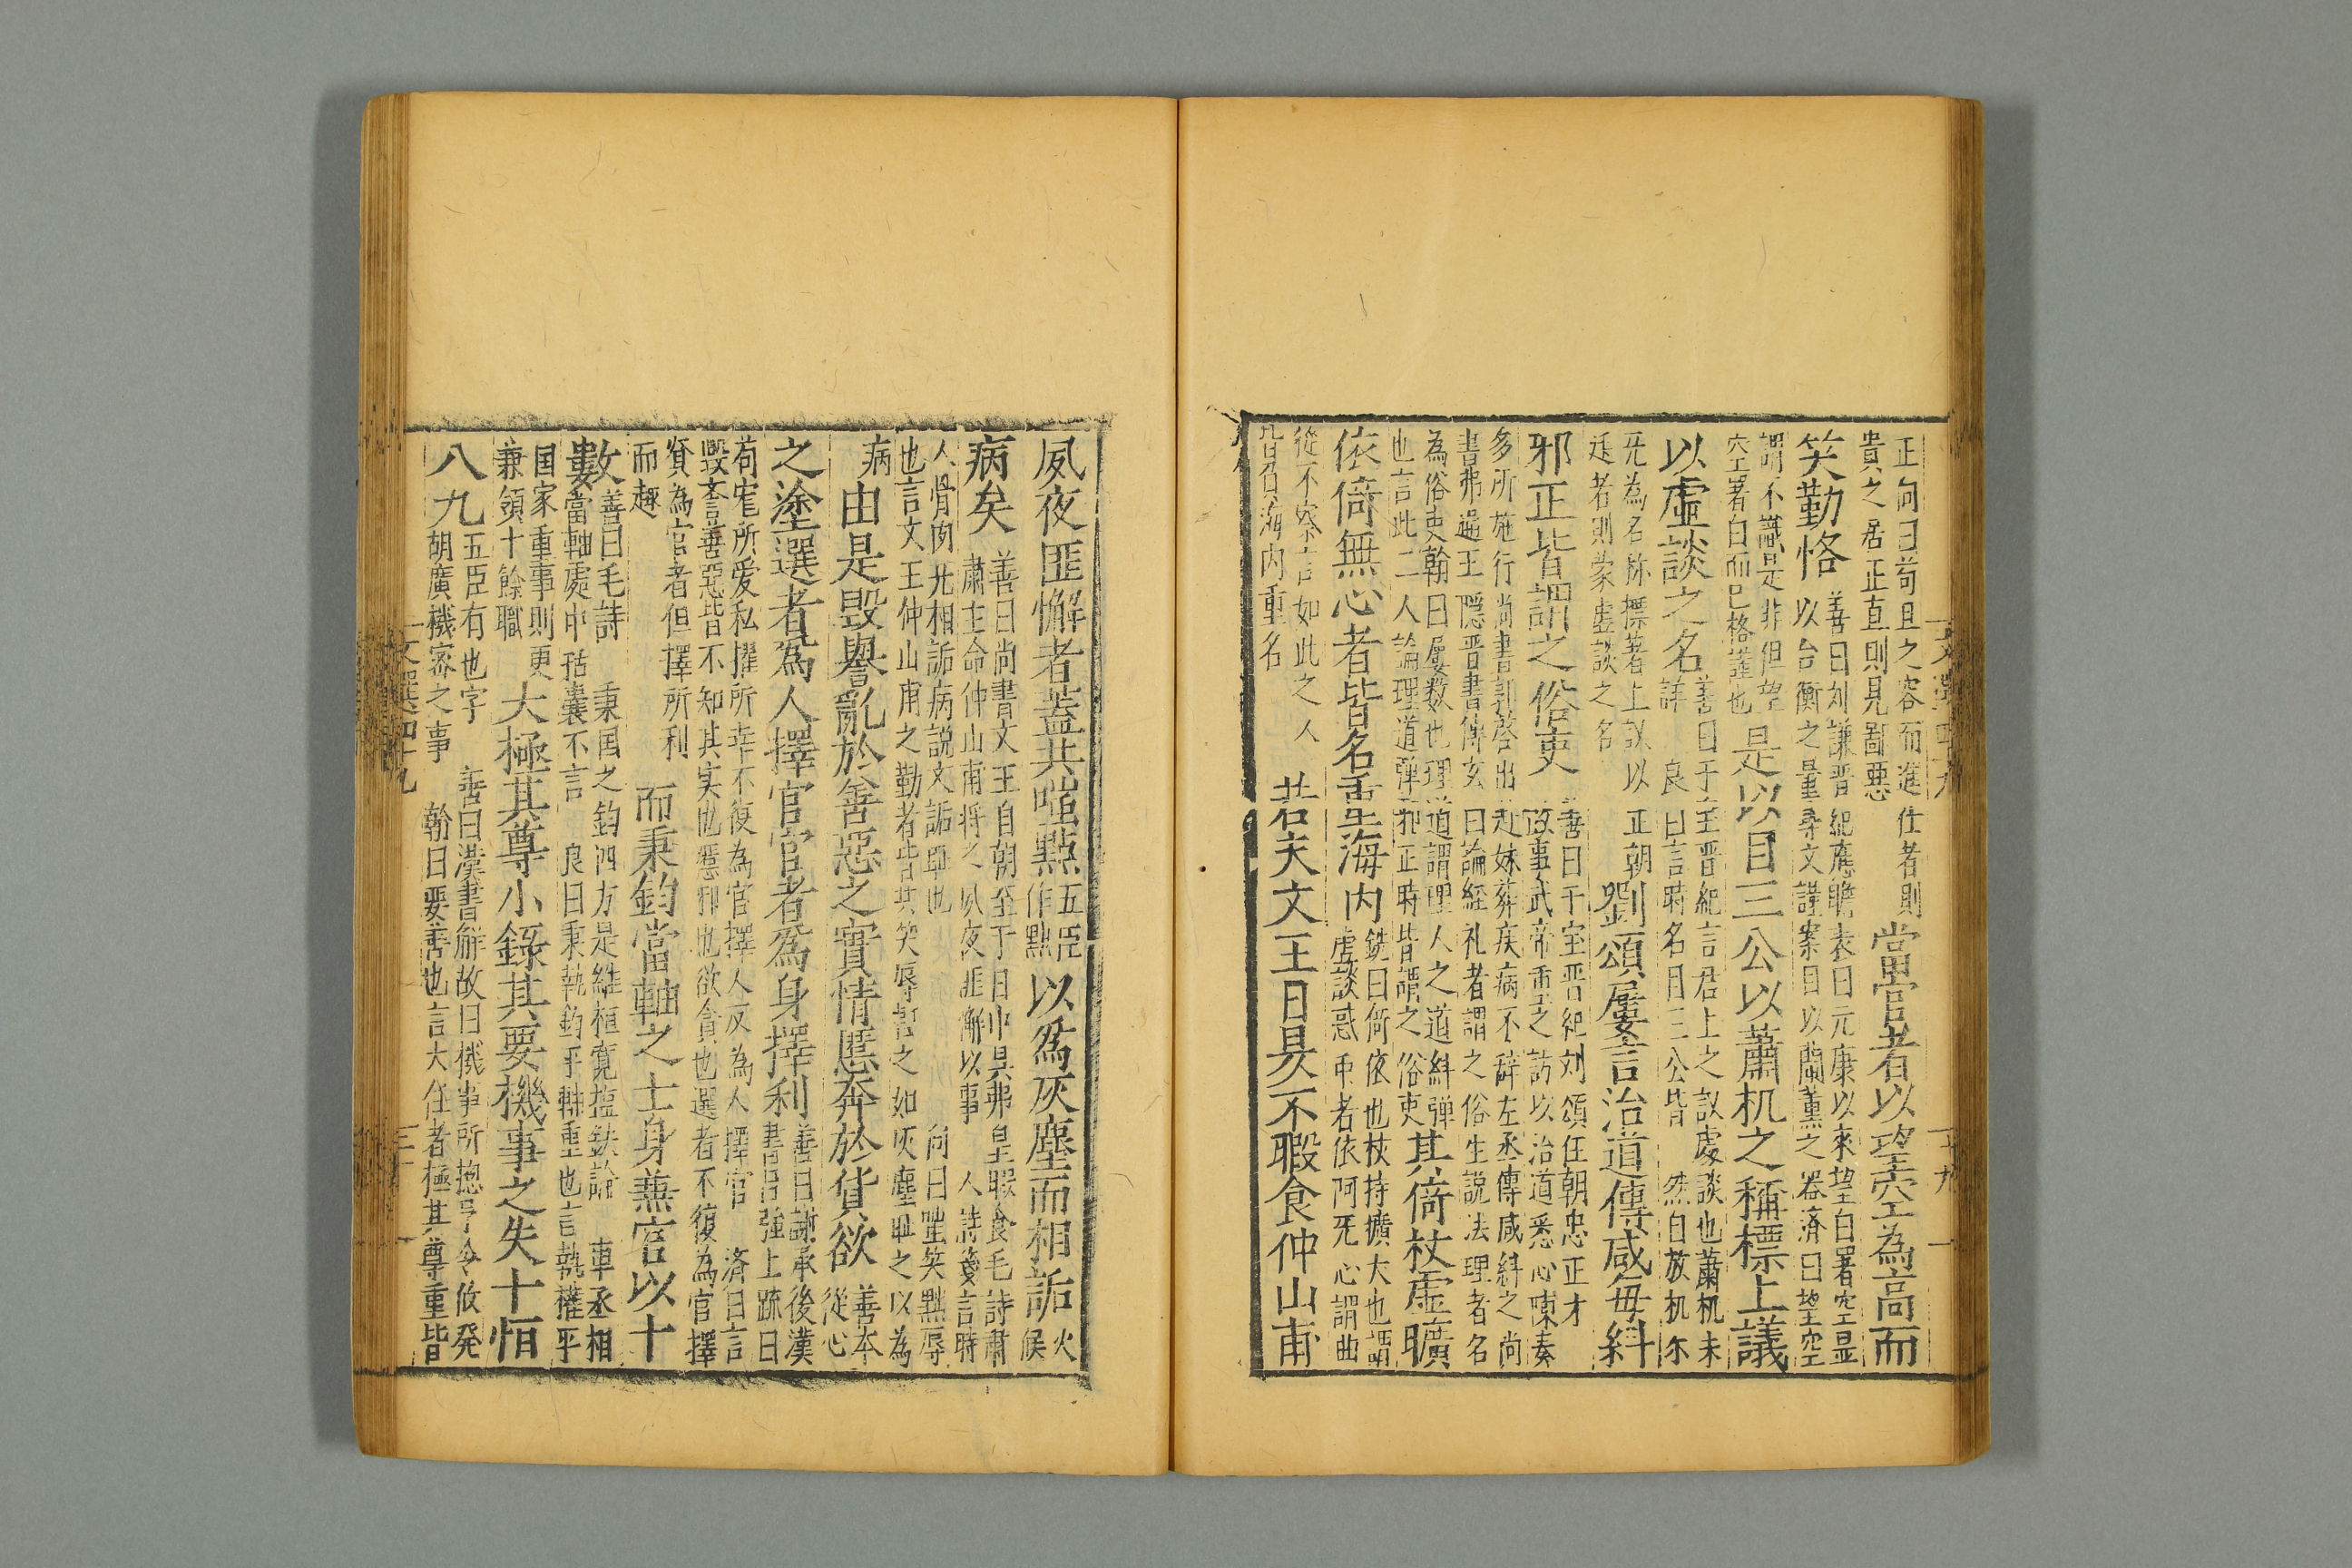 文選四十九
二十九
正向曰苟且之容而進仕者則
貴之居正直則見鄙惡
當官者以望空為高而
笑勤恪
善曰刘謙晋紀應瞻表曰元康以來望白署空显
以台衡之量尋文謹案目以蘭薰之器済曰望空
謂不識是非但望
空署白而已恪謹也
是以目三公以蕭机之稱標上議
以虛談之名
善曰于宝晋紀言君上之議虛談也蕭机未
詳 良曰言時名目三公皆 然自放机尔
无為名称標著上議以正朝
廷者則蒙虛談之名
劉頌屢言治道傅咸每糾
邪正皆謂之俗吏
善曰于宝晋紀刘頌在朝忠正才
政事武帝重之訪以治道悉心陳奏
多所施行尚書郭啓出赴妹葬疾病不辞左丞傅咸糾之尚
書弗過王隠晋書傅玄曰論経礼者謂之俗生説法理者名
為俗吏翰曰屢数也理道謂理人之道糾弾
也言此二人論理道弾邪正時皆謂之俗吏
其倚杖虛曠
依倚無心者皆名重海内
銑曰倚依也杖持擴大也謂
虛談惑帀者依阿无心謂曲
從不察言如此之人
皆名海内重名
若夫文王日昃不暇食仲山甫
夙夜匪懈者蓋共嗤點
五臣
作黜
以為灰塵而相詬
火
候
病矣
善曰尚書文王自朝至于日中昃弗皇暇食毛詩肅
肅主命仲山甫将之夙夜匪懈以事 人詩箋言時
人骨肉无相詬病説文詬耻也 向曰嗤笑黜辱
也言文王仲山甫之勤者皆共笑辱詬之如灰塵耻之以為
病
由是毀譽亂於善惡之實情慝奔於貨欲
善本
從心
之塗選者為人擇官官者為身擇利
善曰謝承後漢
書呂強上疏曰
苟寵所爱私擢所幸不復為官擇人反為人擇官 済曰言
毀誉善惡皆不知其実也慝邪也欲貪也選者不復為官擇
賢為官者但擇所利
而趣
而秉鈞當軸之士身兼官以十
數
善曰毛詩 秉国之鈞四方是維桓寛塩鉄論 車丞相
當軸處中括囊不言 良曰秉執鈞平軸重也言執權平
国家重事則更
兼領十餘職
大極其尊小錄其要機事之失十恒
八九
五臣有也字 善曰漢書解故曰機事所揔号令攸発
胡廣機密之事 翰曰要善也言大任者極其尊重皆
文選四十九
三十